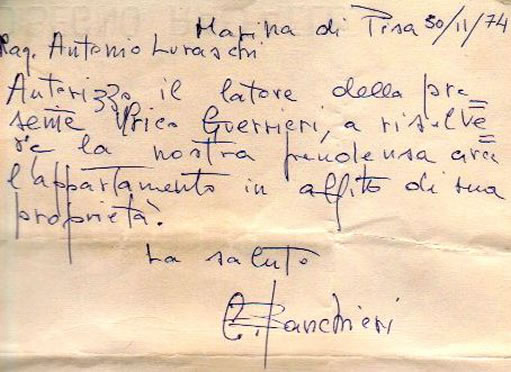 Marina di Pisa 30/11/74
Rag. Antonio Luraschi
Autorizzo il latore della pre=
sente Guerrieri, a risolve=
re la nostra pendensa
l'appartamento in affito di sua
proprietà.
La saluto
Banchieri